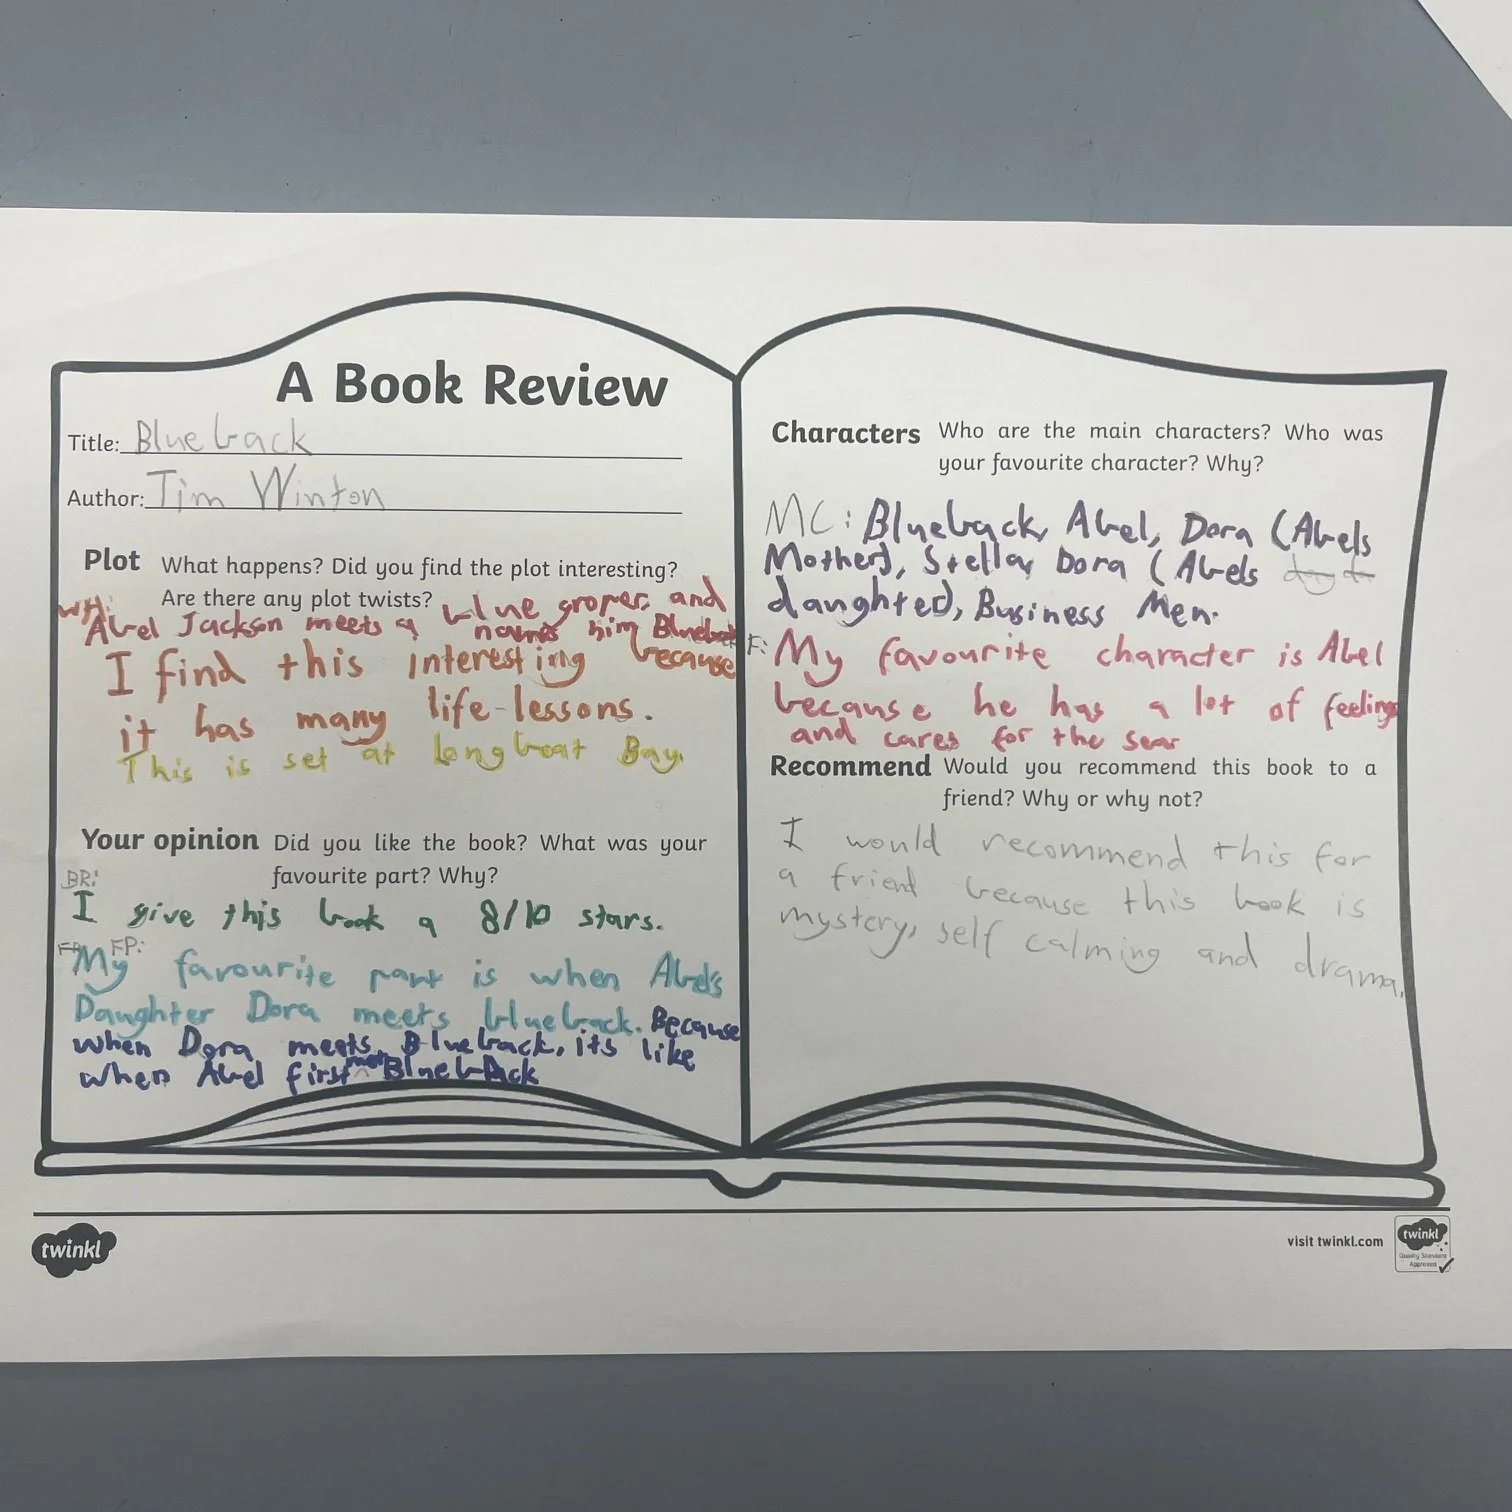 A Book Review
Title: Blueback
Author: Tim Winton
Plot What happens? Did you find the plot interesting?
Are there any plot twists?
WH: Abel Jackson meets a blue groper, and
names him Blueback
I find this interesting because
it has many life-lessons.
This is set at Longboat Bay.
Your opinion Did you like the book? What was your
favourite part? Why?
BR:
I give this book a 8/10 stars.
FP:
My favourite part is when Abel's
Daughter Dora meets blueback. Because
when Dora meets Blueback, its like
when Abel first met Blueback
Characters Who are the main characters? Who was
your favourite character? Why?
MC: Blueback, Abel, Dora (Abels
Mother), Stella, Dora (Abels
daughter), Business Men.
F: My favourite character is Abel
because he has a lot of feelings
and cares for the sea
Recommend Would you recommend this book to a
friend? Why or why not?
I would recommend this for
a friend because this book is
mystery, self calming and drama.
twinkl
visit twinkl.com
twinkl
Quality Standard
Approved